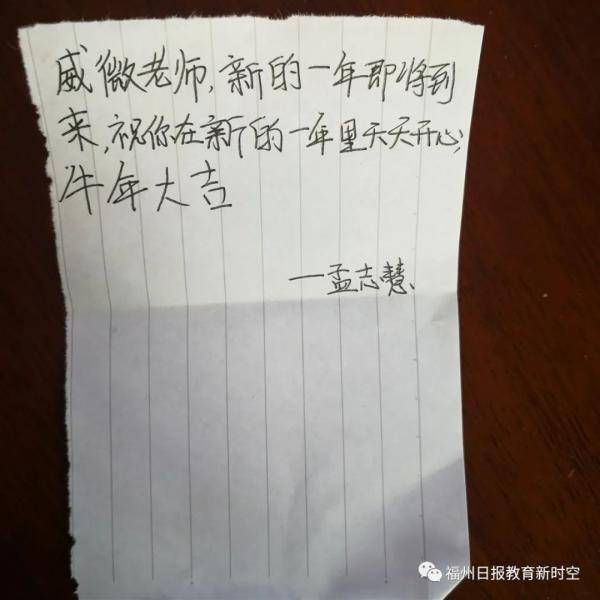 威微老师,新的一年即将到
来,祝你在新的一年里天天开心,
牛年大吉
—孟志慧
福州日报教育新时空